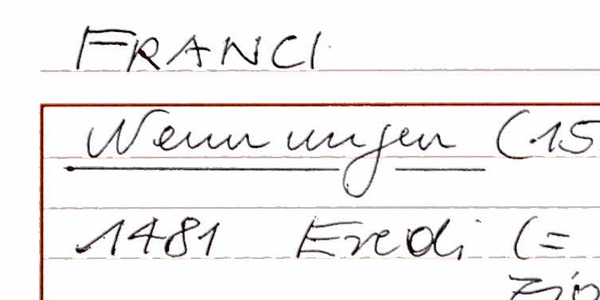 FRANCI
Nennungen (15
1481 Eredi (=
Zio